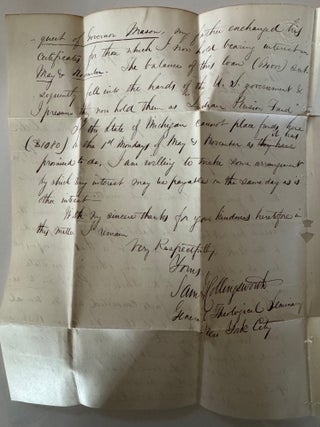 quest of Governor Mason, my father exchanged his
Certificates for those which I now hold bearing interest in
May & November. The balance of this loan ($1000) sub-
sequently fell into the hands of the U. S. government &
I presume they now hold them as "Indian Pension Fund"
If the State of Michigan cannot place funds here
($1080) in the 1st Mondays of May & November as they have
promised to day, I am willing to make some arrangement
by which my interest may be payable on the same day as is
other interest
With my sincere thanks for your kindness heretofore in
this matter I remain
Very Respectfully
Yours
Sam Hollingsworth
General Theological Seminary
New York City